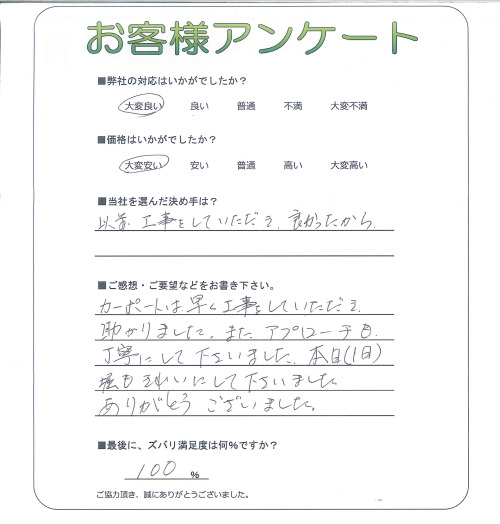 お客様アンケート
■弊社の対応はいかがでしたか？
大変良い 良い 普通 不満 大変不満
■価格はいかがでしたか？
大変安い 安い 普通 高い 大変高い
■当社を選んだ決め手は？
以前、工事をしていただき、良かったから、
■ご感想・ご要望などをお書き下さい。
カーポートは早く工事をしていただき
助かりました。また アプローチも
丁寧にして下さいました。本日(1日)
もきれいにして下さいました。
ありがとう ございました。
■最後に、ズバリ満足度は何%ですか？
100 %
ご協力頂き、誠にありがとうございました。